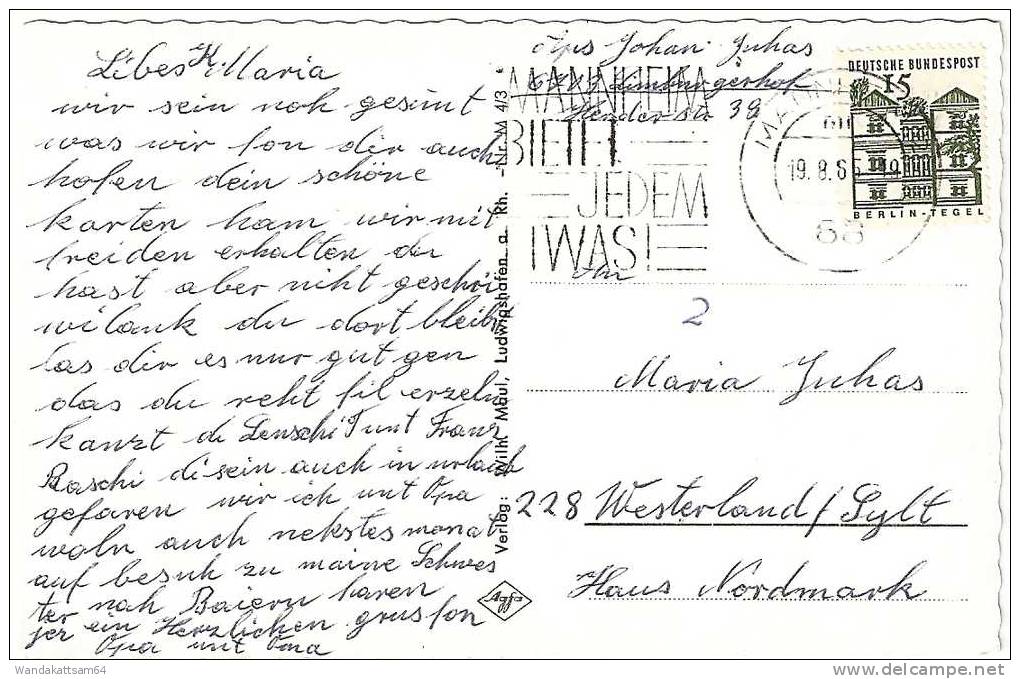 Libes K. Maria
wir sein noh gesunt
was wir fon dir auch
hofen dein schöne
karten ham wir mit
freiden erhalten du
hast aber niht geschri
wi lank du dort bleibs
las dir es nur gut gen
das du reht fil erzeln
kanzt di Lenschi T unt Franz
Baschi di sein auch in urlaub
gefaren wir ich unt Opa
woln auch nekstes monat
auf besuh zu maine Schwes
ter nah Baiern faren
jer ein Herzlichen grus fon
Opa unt Oma
Verlag: Wilh. Maul, Ludwigshafen a. Rh. - Nr. M 4/3
Agfa
Aps Johan Juhas
6703 Limburgerhof
Herder str 39
MANNHEIM
BIETET
JEDEM
WAS!
MANNHEIM
19.8.65-19
68
DEUTSCHE BUNDESPOST
15
BERLIN-TEGEL
An
2
Maria Juhas
228 Westerland/Sylt
Haus Nordmark
Wandakattsam64
delcampe.net